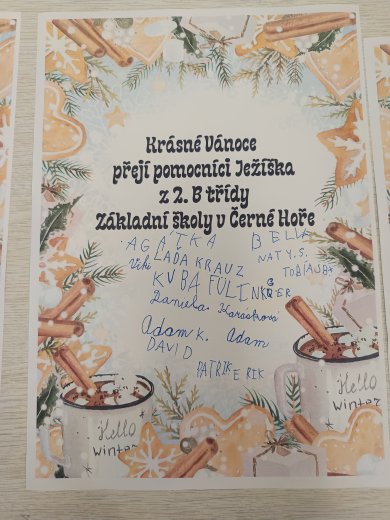 Krásné Vánoce
přejí pomocníci Ježíška
z 2. B třídy
Základní školy v Černé Hoře
AGÁTKA BELLA
LÁĎA KRAUZ NATY.S.
Viki TOBIÁŠ
KUBA FULÍN
Daniela
Adam K. Adam
DAVID
PATRIK ERIK
Hello
winter
Hello
winter